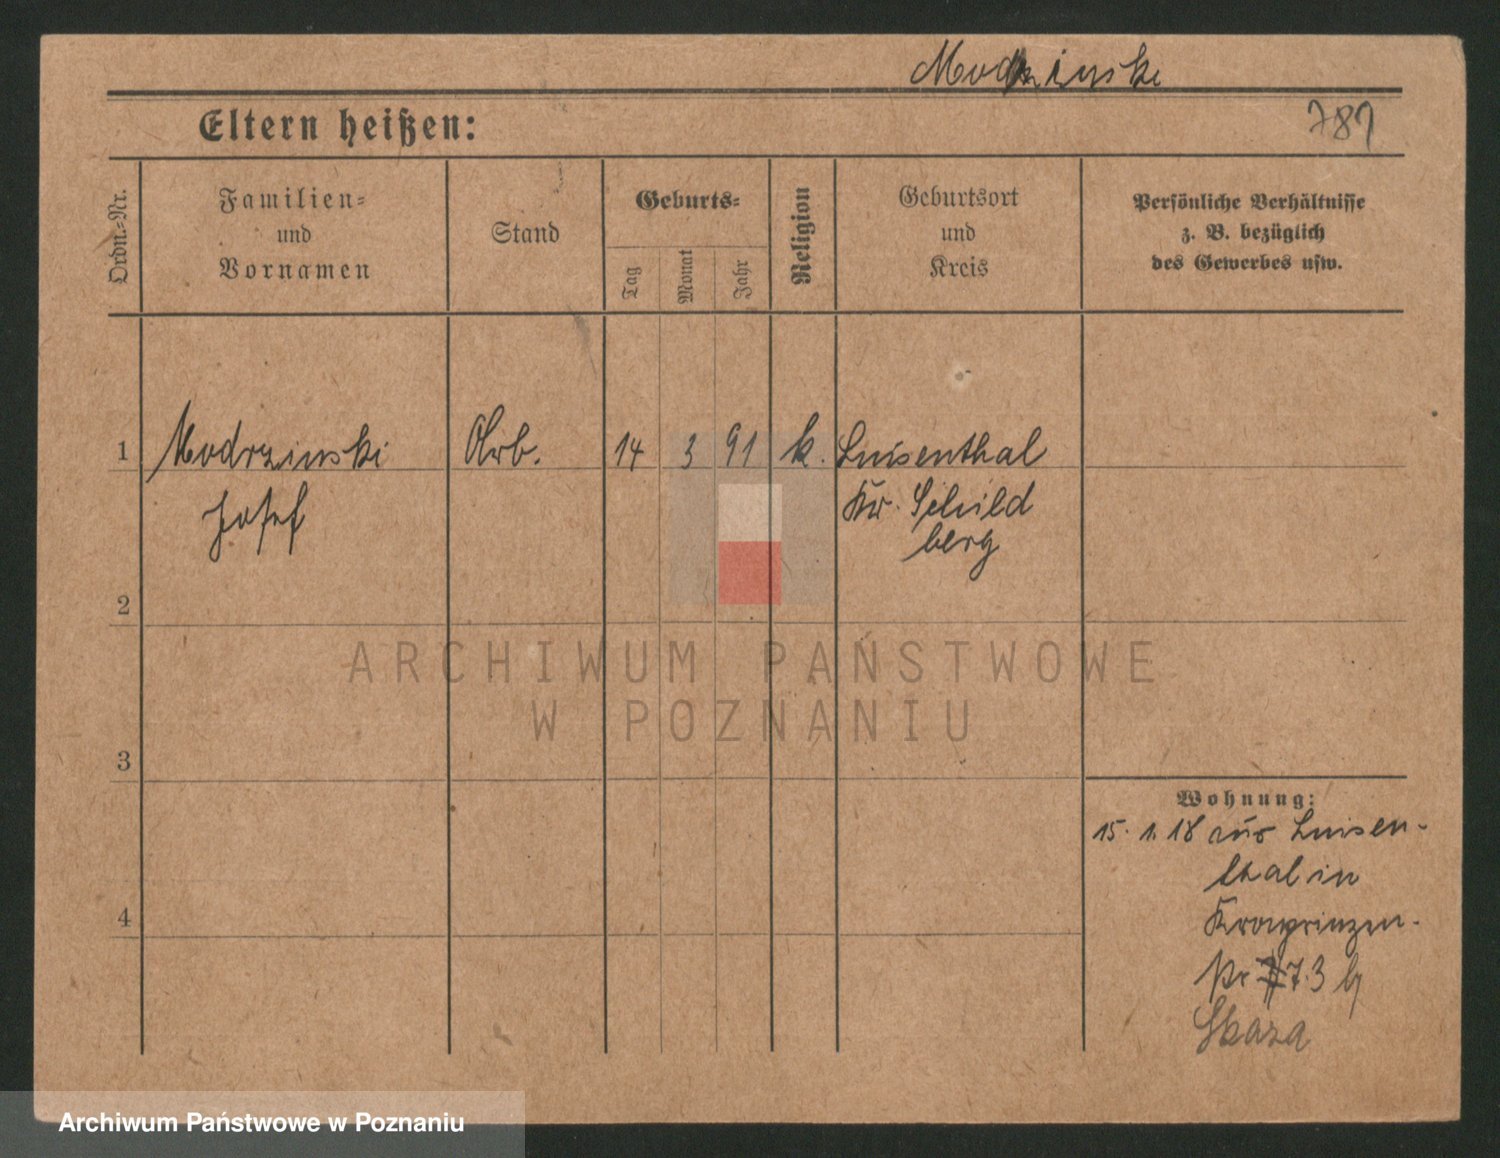 Modrzinski
Eltern heißen:
787
Ordn.-Nr.
Familien-
und
Vornamen
Stand
Geburts-
Tag
Monat
Jahr
Religion
Geburtsort
und
Kreis
Persönliche Verhältnisse
z. B. bezüglich
des Gewerbes usw.
1 Modrzinski Arb. 14 3 91 k. Luisenthal
Josef Kr. Schild
berg
2
ARCHIWUM PAŃSTWOWE
W POZNANIU
3
Wohnung:
15. 1. 18 aus Luisen-
thal in
4
Kronprinzen-
7.3
Skaza
Archiwum Państwowe w Poznaniu